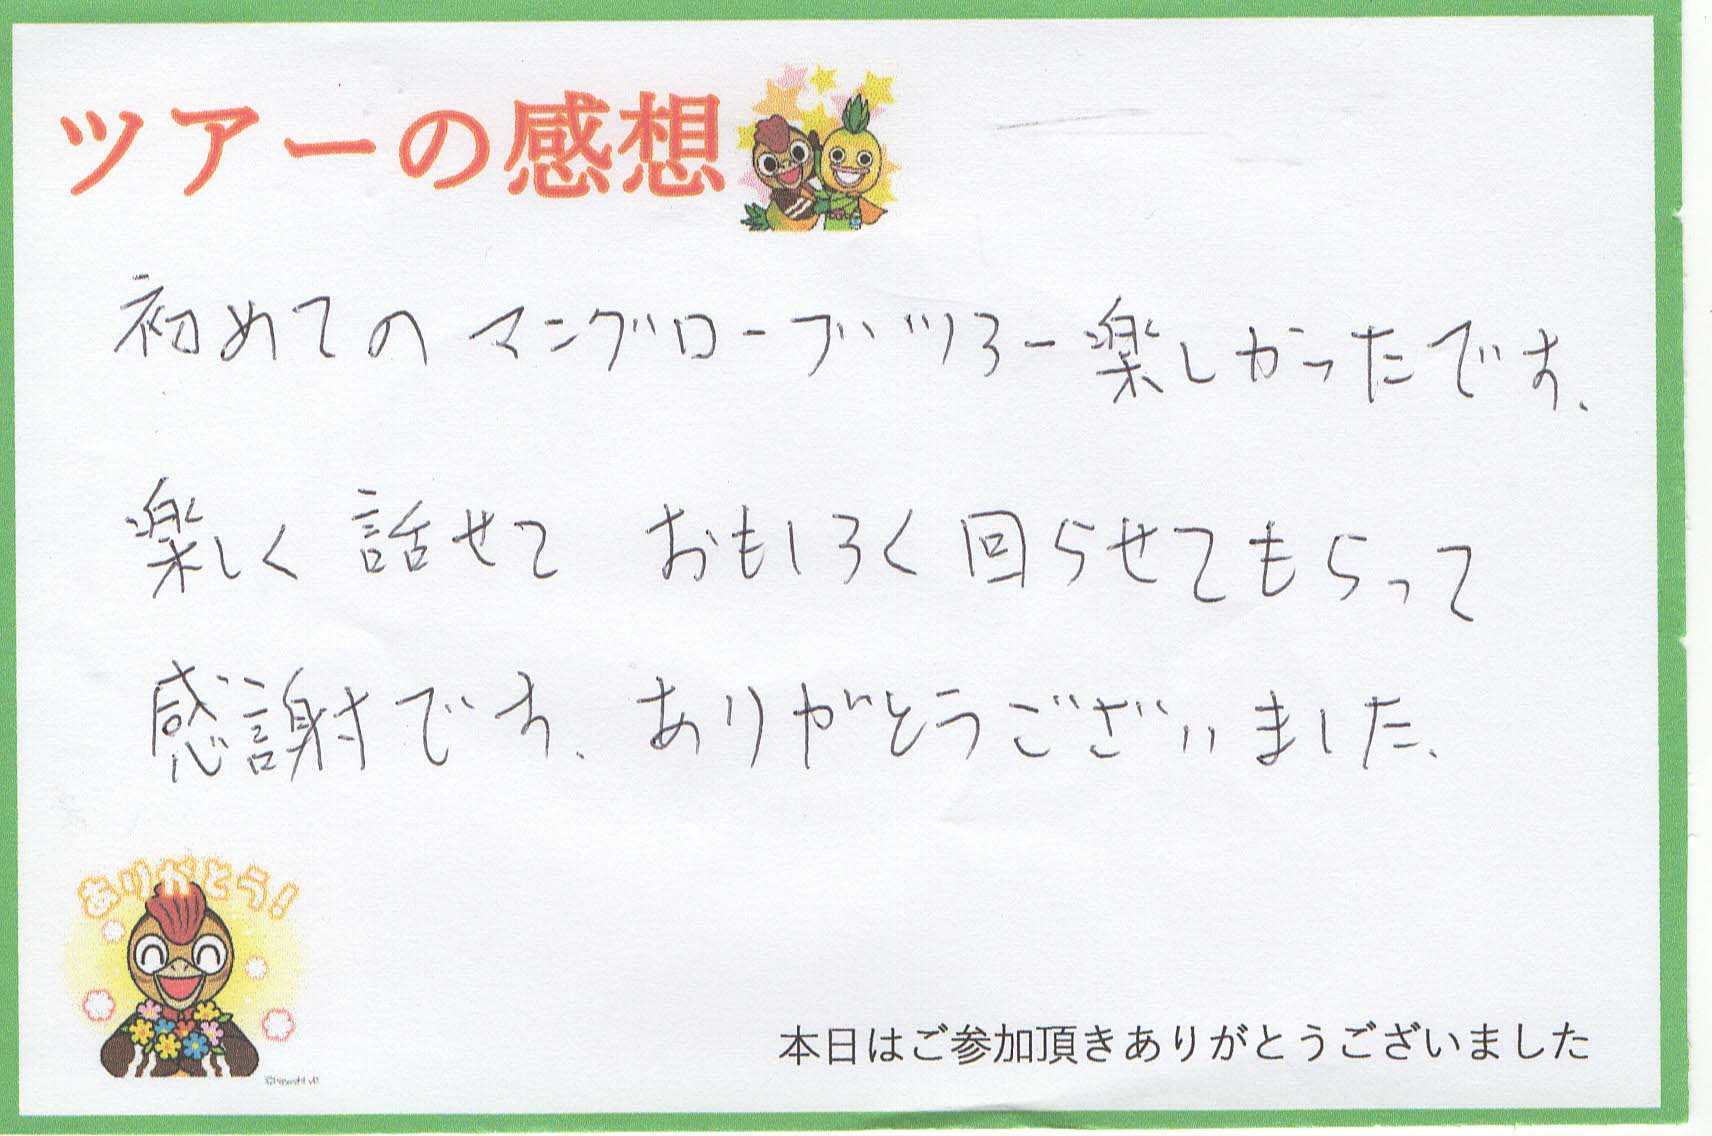 ツアーの感想
初めてのマングローブツアー楽しかったです。
楽しく話せて おもしろく回らせてもらって
感謝です。ありがとうございました。
ありがとう!
本日はご参加頂きありがとうございました